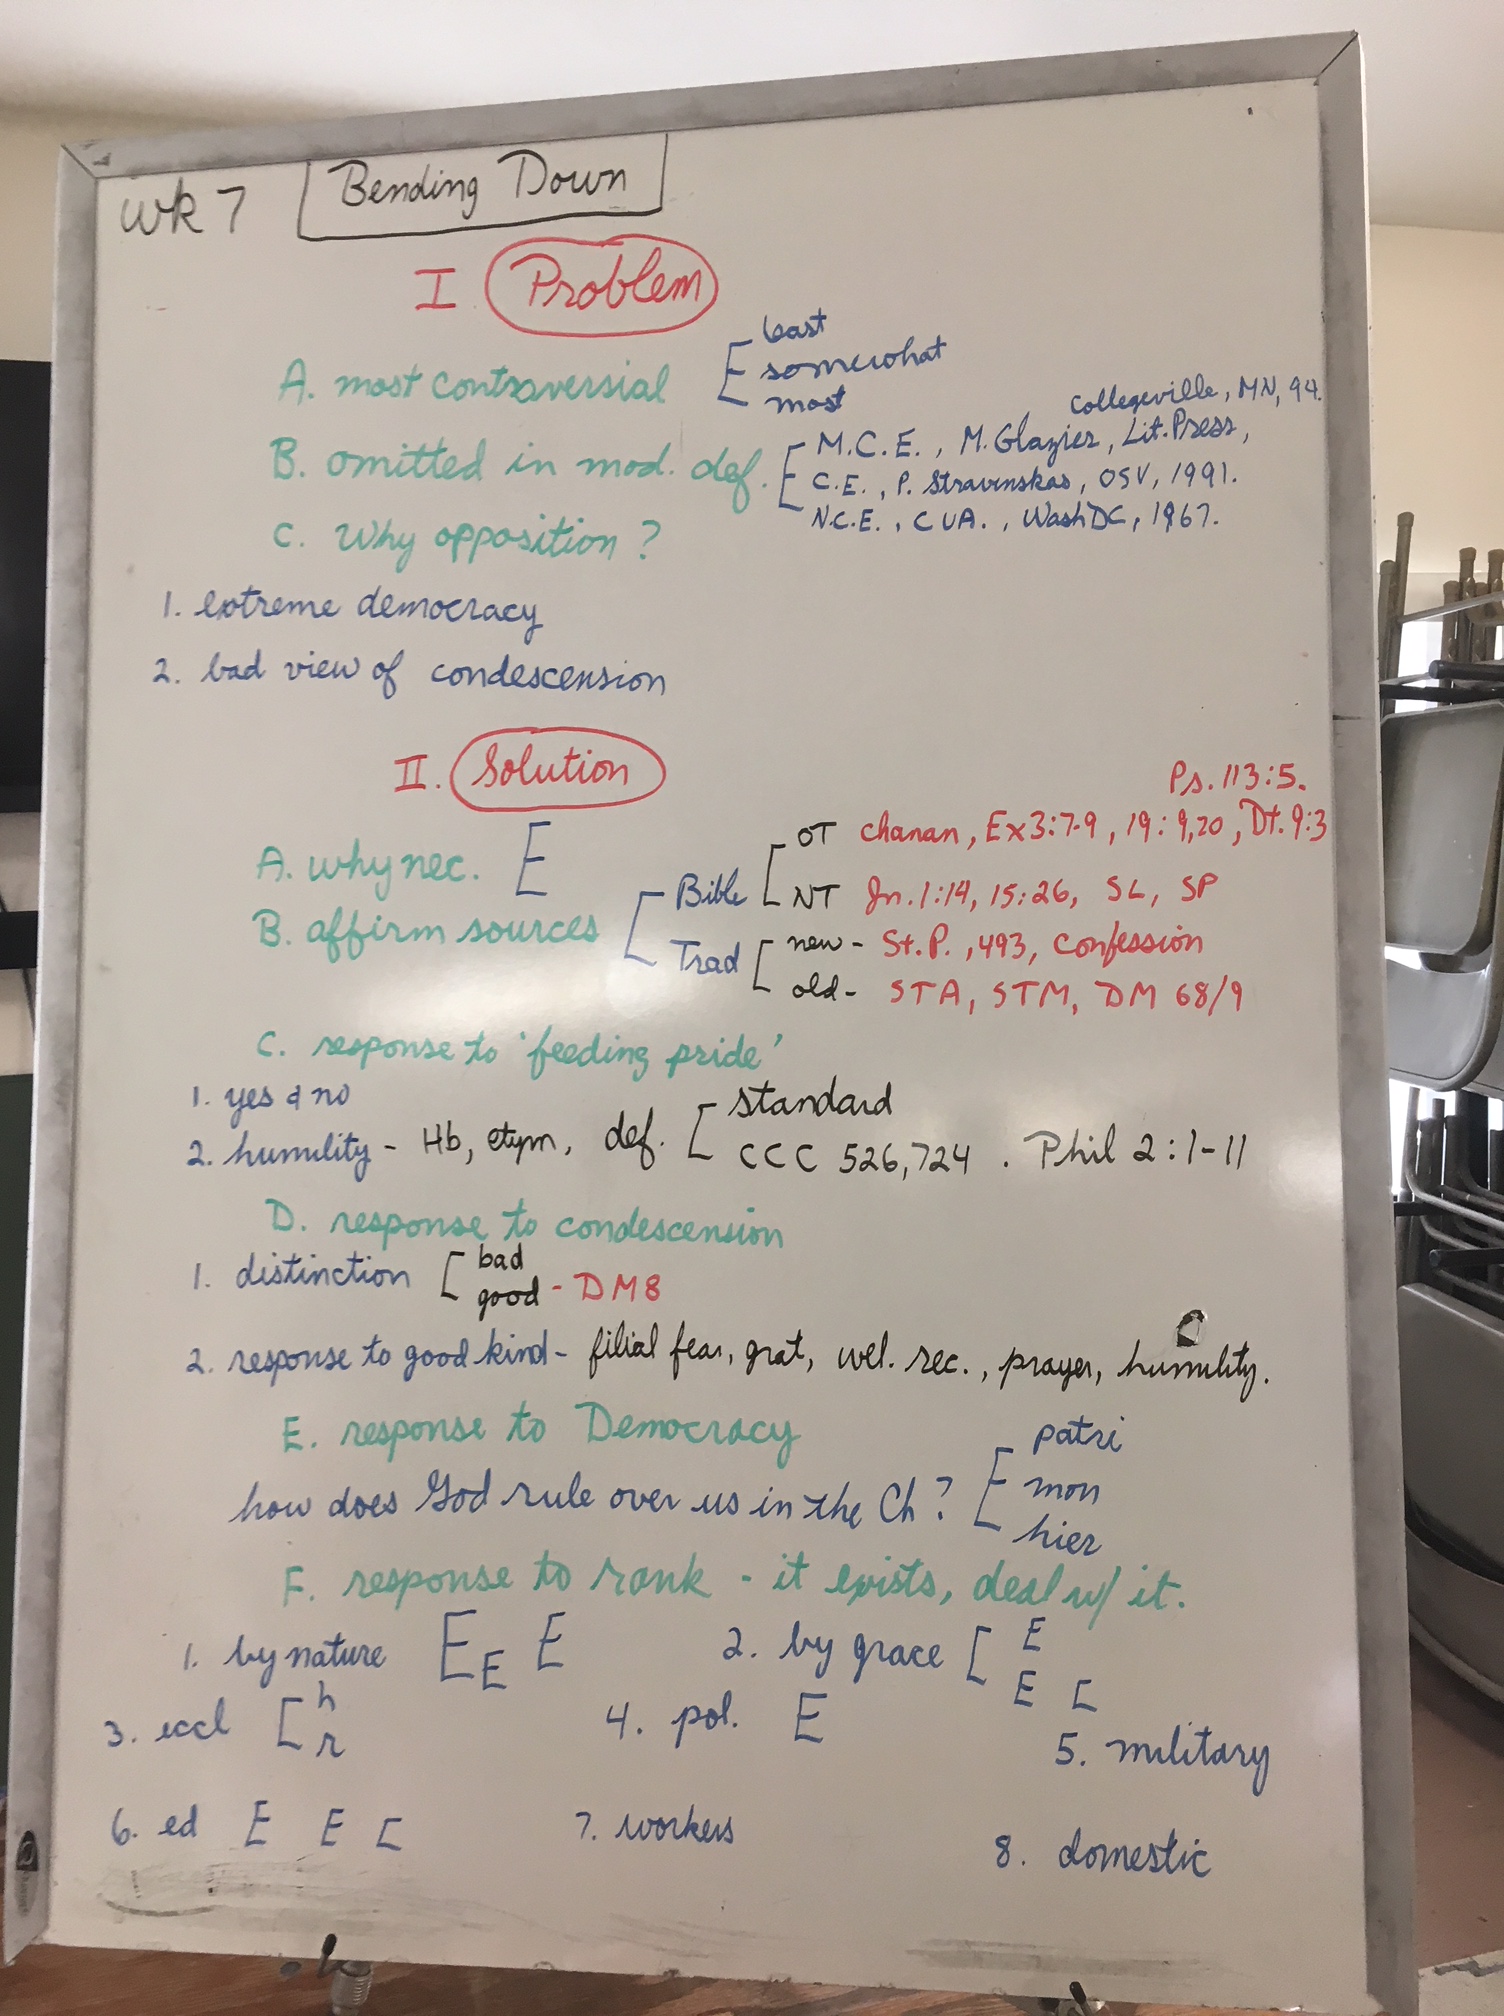 Wk 7 Bending Down
I. Problem
A. most controversial [ least
somewhat
most
Collegeville, MN, 94.
B. omitted in mod. def. [ M.C.E., M. Glazier, Lit. Press,
C.E., P. Stravinskas, OSV, 1991.
N.C.E., CUA., Wash DC, 1967.
C. Why opposition?
1. extreme democracy
2. bad view of condescension
II. Solution
Ps. 113:5.
A. why nec. E
OT chanan, Ex 3:7-9, 19:9,20, Dt. 9:3
B. affirm sources [ Bible [ NT Jn. 1:14, 15:26, SL, SP
Trad [ new - St. P., 493, Confession
old - STA, STM, DM 68/9
C. response to 'feeding pride'
1. yes & no
2. humility - Hb, etym, def. [ standard
CCC 526,724 . Phil 2:1-11
D. response to condescension
1. distinction [ bad
good - DM8
2. response to good kind - filial fear, grat, wel. rec., prayer, humility.
E. response to Democracy
how does God rule over us in the Ch? [ patri
mon
hier
F. response to rank - it exists, deal w/ it.
1. by nature E E E 2. by grace [ E
E [
3. eccl [ h
r
4. pol. E
5. military
6. ed E E [
7. workers
8. domestic